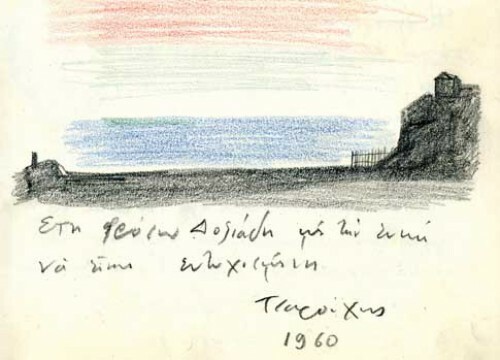 Στη Φρόσω Δοξιάδη μὲ τὴν εὐχή
νὰ εἶναι εὐτυχισμένη.
Τσαρούχης
1960